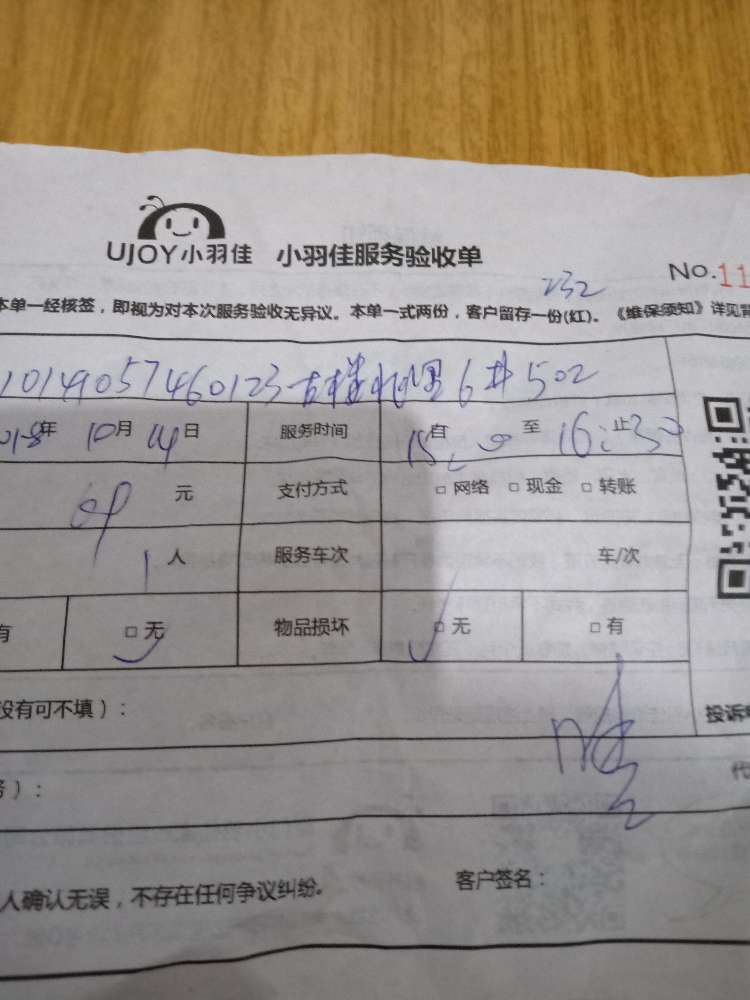 UJOY小羽佳 小羽佳服务验收单
No.11
232
本单一经核签，即视为对本次服务验收无异议。本单一式两份，客户留存一份(红)。《维保须知》详见背
10149057460123 6 502
年 10月 14日 服务时间 15:00 自 至 16:30 止
元 支付方式 □ 网络 □ 现金 □ 转账
1 人 服务车次 车/次
有 □ 无 物品损坏 □ 无 □ 有
没有可不填）：
投诉
代
）：
人确认无误，不存在任何争议纠纷。 客户签名：